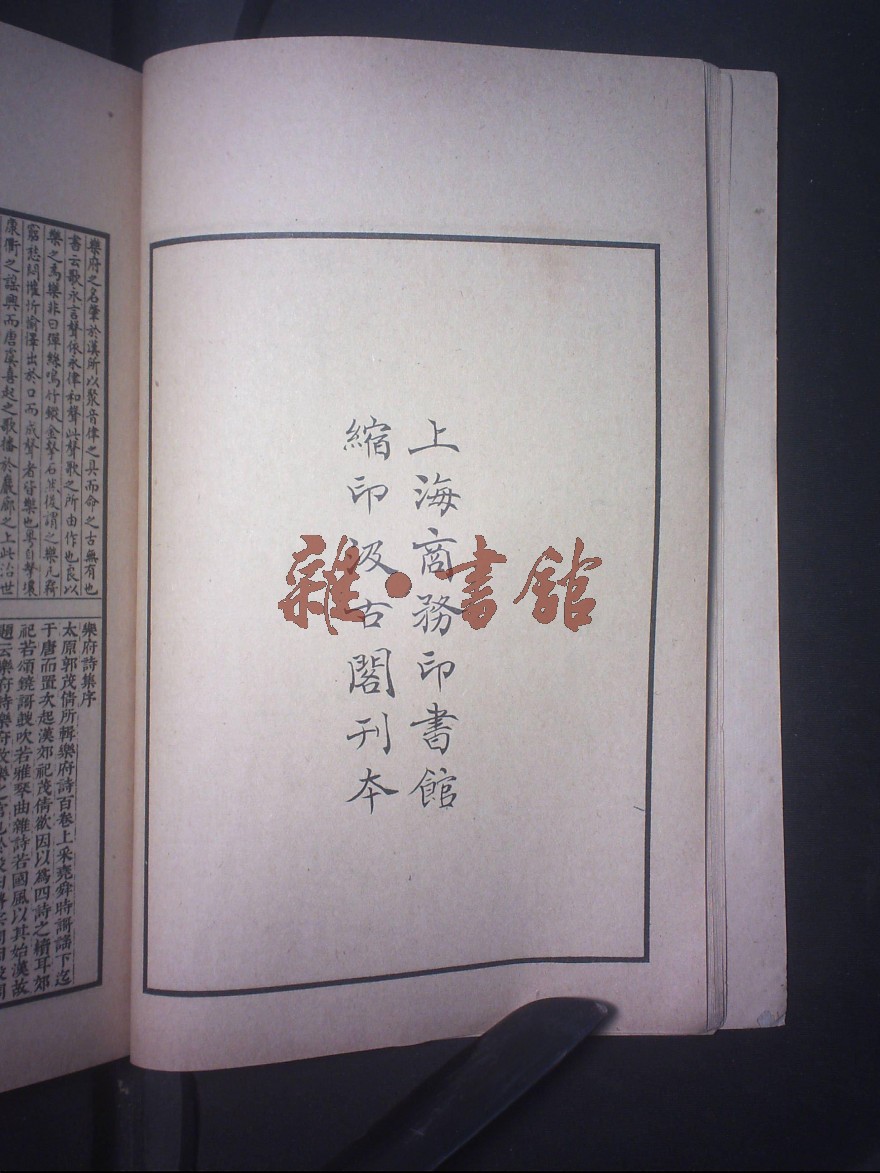 上海商務印書館
縮印汲古閣刊本
雜·書館
樂府之名肇於漢所以聚音律之具而命之古無有也
書云歌永言聲依永律和聲此聲歌之所由作也良以
樂之爲樂非曰彈絲鳴竹鍛金擊石
而成聲者皆樂也
康衢之謡興而唐虞喜起之歌播於巖廊之上此治世
樂府詩集序
太原郭茂倩所輯樂府詩百卷上采堯舜時謌謡下迄
于唐而置次起漢郊祀茂倩欲因以爲四詩之續耳郊
祀若頌鐃謌鼓吹若雅琴曲雜詩若國風以其始漢故
題云樂府詩樂府